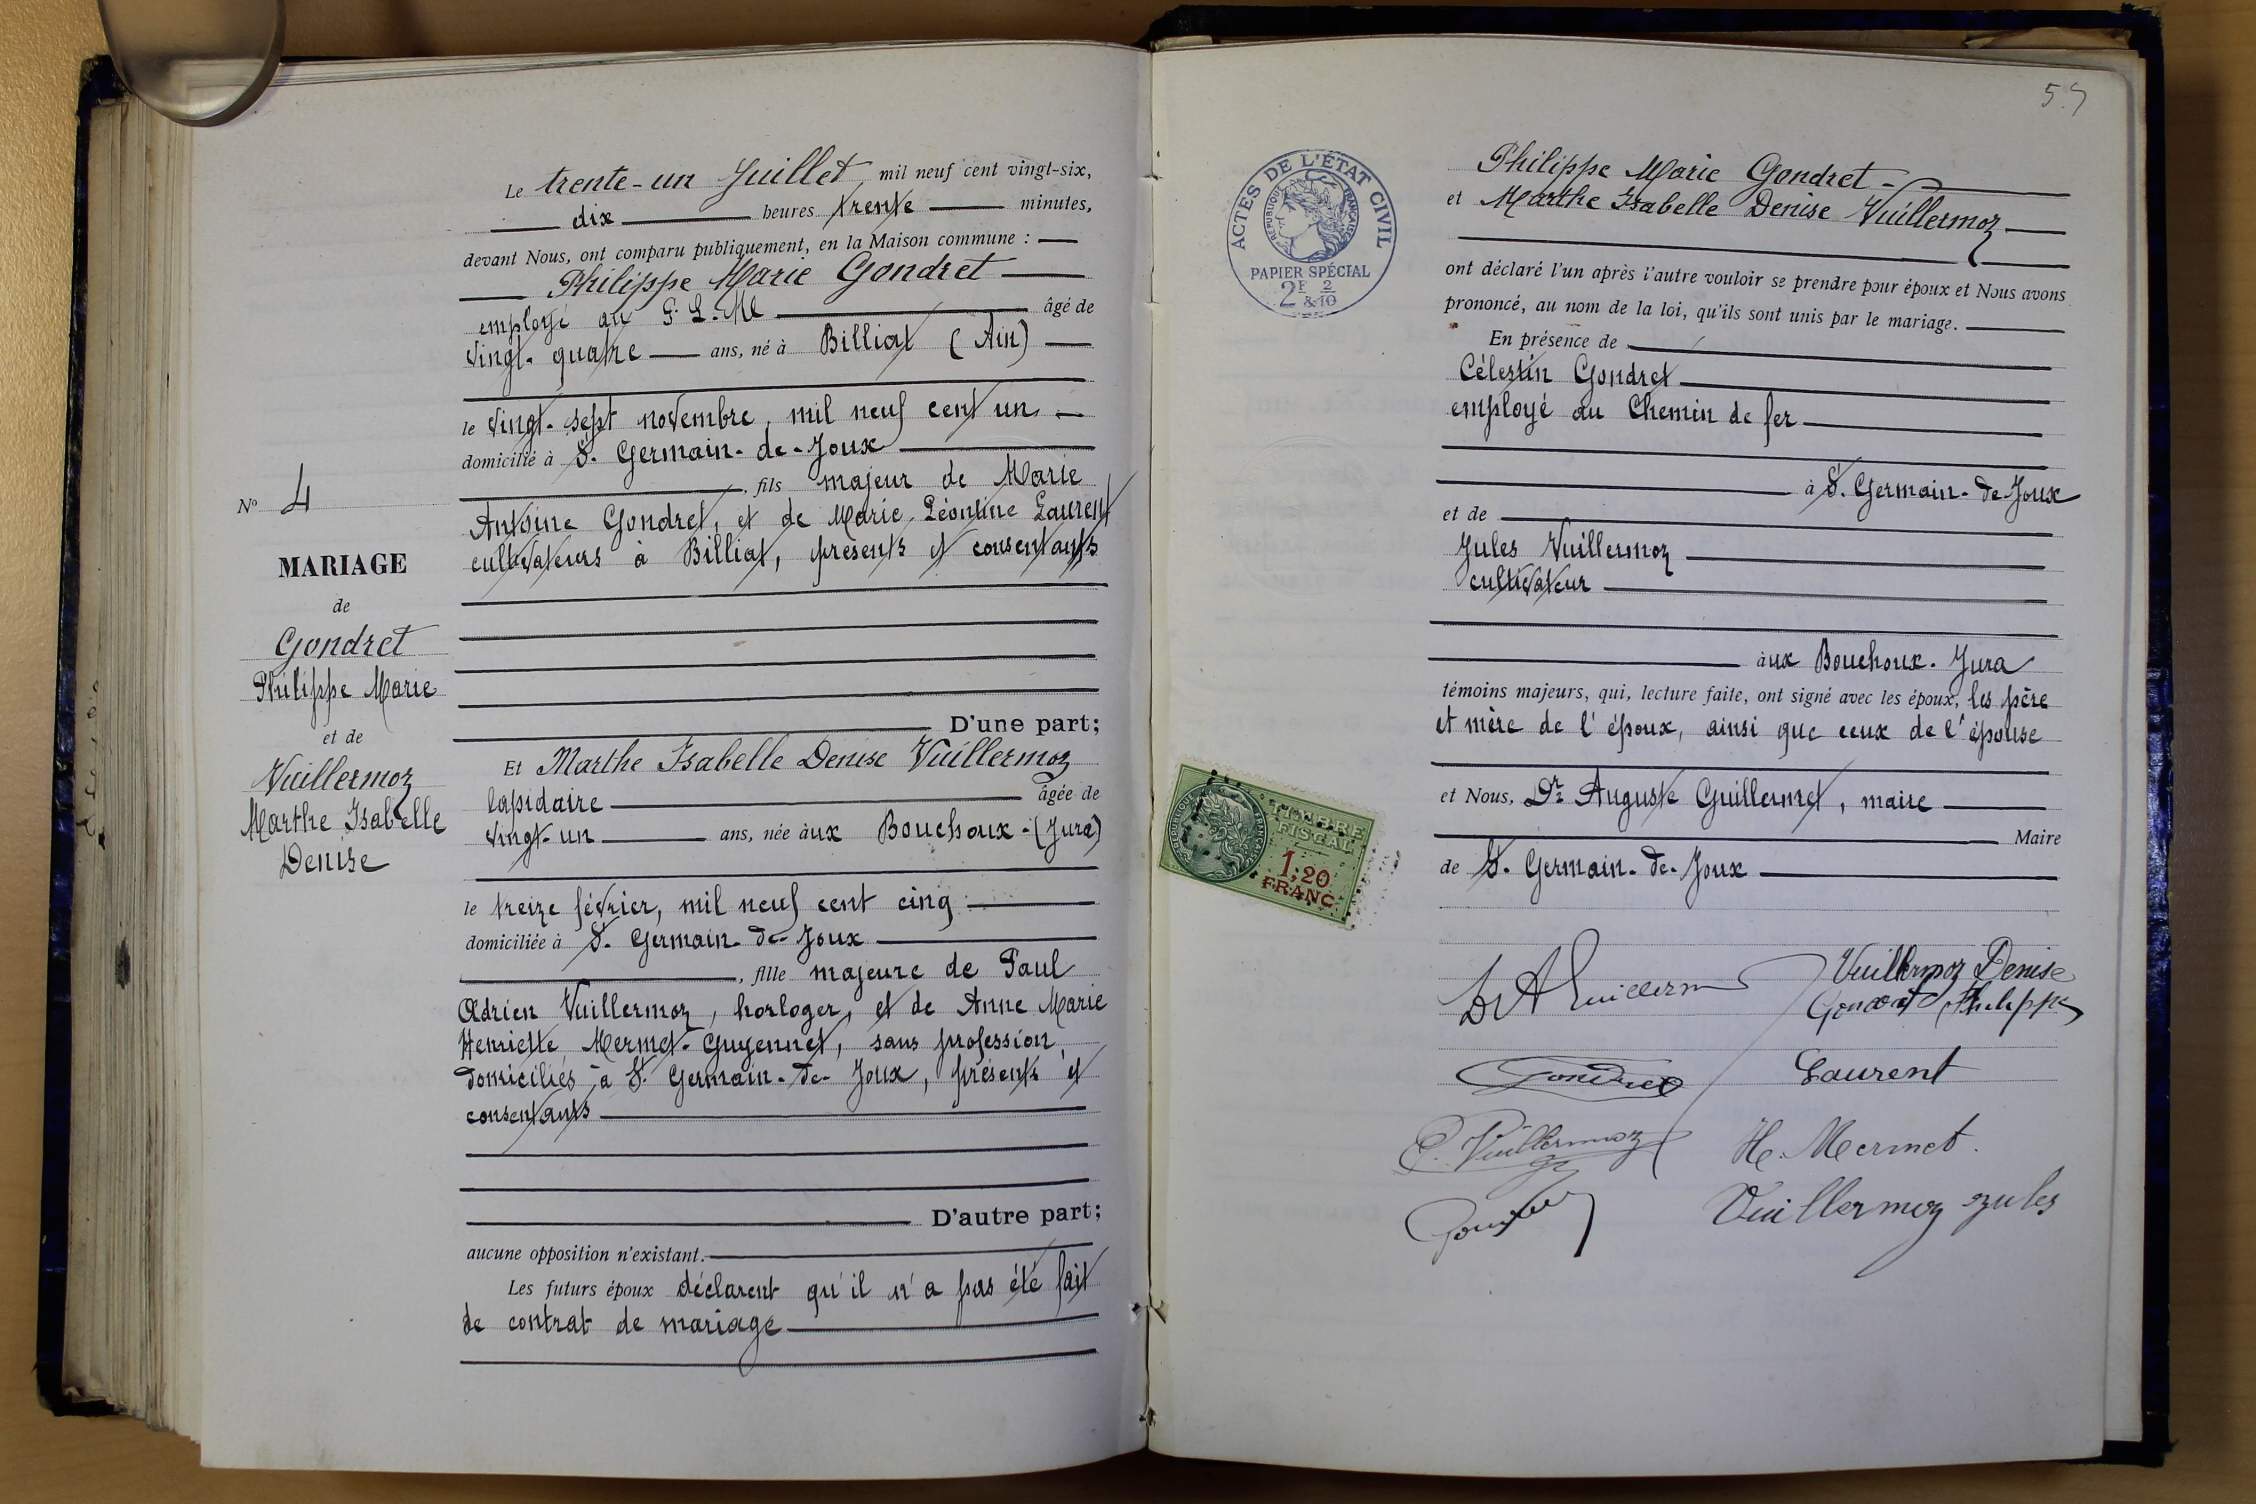 Le trente-un Juillet mil neuf cent vingt-six,
dix heures trente minutes,
devant Nous, ont comparu publiquement, en la Maison commune :
Philippe Marie Gondret
employé au P. L. M. âgé de
vingt-quatre ans, né à Billiat (Ain)
le vingt-sept novembre, mil neuf cent un
domicilié à St. Germain-de-Joux
, fils majeur de Marie
Antoine Gondret, et de Marie Léontine Laurent
cultivateurs à Billiat, présents et consentants
D'une part;
Et Marthe Isabelle Denise Vuillermoz
lapidaire âgée de
vingt-un ans, née àux Bouchoux-(Jura)
le treize février, mil neuf cent cinq
domiciliée à St. Germain-de-Joux
, fille majeure de Paul
Adrien Vuillermoz, horloger, et de Anne Marie
Henriette Mermet-Guyennet, sans profession,
domiciliés à St. Germain-de-Joux, présents et
consentants
D'autre part;
aucune opposition n'existant.
Les futurs époux déclarent qu'il n'a pas été fait
de contrat de mariage
No 4
MARIAGE
de
Gondret
Philippe Marie
et de
Vuillermoz
Marthe Isabelle
Denise
ACTES DE L'ÉTAT CIVIL
RÉPUBLIQUE FRANÇAISE
PAPIER SPÉCIAL
2F & 2/10
Philippe Marie Gondret
et Marthe Isabelle Denise Vuillermoz
ont déclaré l'un après l'autre vouloir se prendre pour époux et Nous avons
prononcé, au nom de la loi, qu'ils sont unis par le mariage.
En présence de
Célestin Gondret
employé au Chemin de fer
à St. Germain-de-Joux
et de
Jules Vuillermoz
cultivateur
àux Bouchoux. Jura
témoins majeurs, qui, lecture faite, ont signé avec les époux, les père
et mère de l'époux, ainsi que ceux de l'épouse
et Nous, Dr Auguste Guillermet, maire
Maire
de St. Germain-de-Joux
TIMBRE
FISCAL
1,20
FRANC
Vuillermoz Denise
Gondret Philippe
Gondret Laurent
P. Vuillermoz H. Mermet.
Vuillermoz Jules